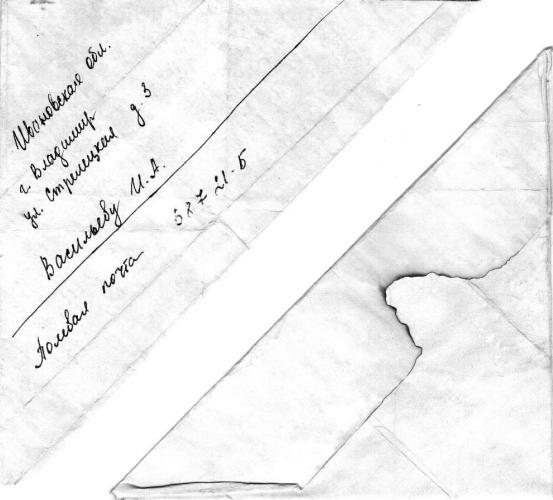 Ивановская обл.
г. Владимир
ул. Стрелецкая д. 3
Васильеву И. А.
Полевая почта 68721-Б